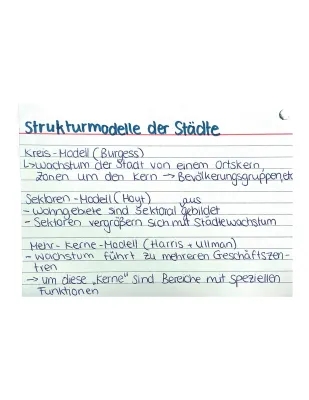 Strukturmodelle der Städte
Kreis-Modell (Burgess)
↳ Wachstum der Stadt von einem Ortskern aus
Zonen um den Kern → Bevölkerungsgruppen, etc
Sektoren-Modell (Hoyt)
- Wohngebiete sind sektoral gebildet
- Sektoren vergrößern sich mit Städtewachstum
Mehr-Kerne-Modell (Harris + Ullman)
- Wachstum führt zu mehreren Geschäftszen-
tren
→ um diese „Kerne" sind Bereiche mit speziellen
Funktionen